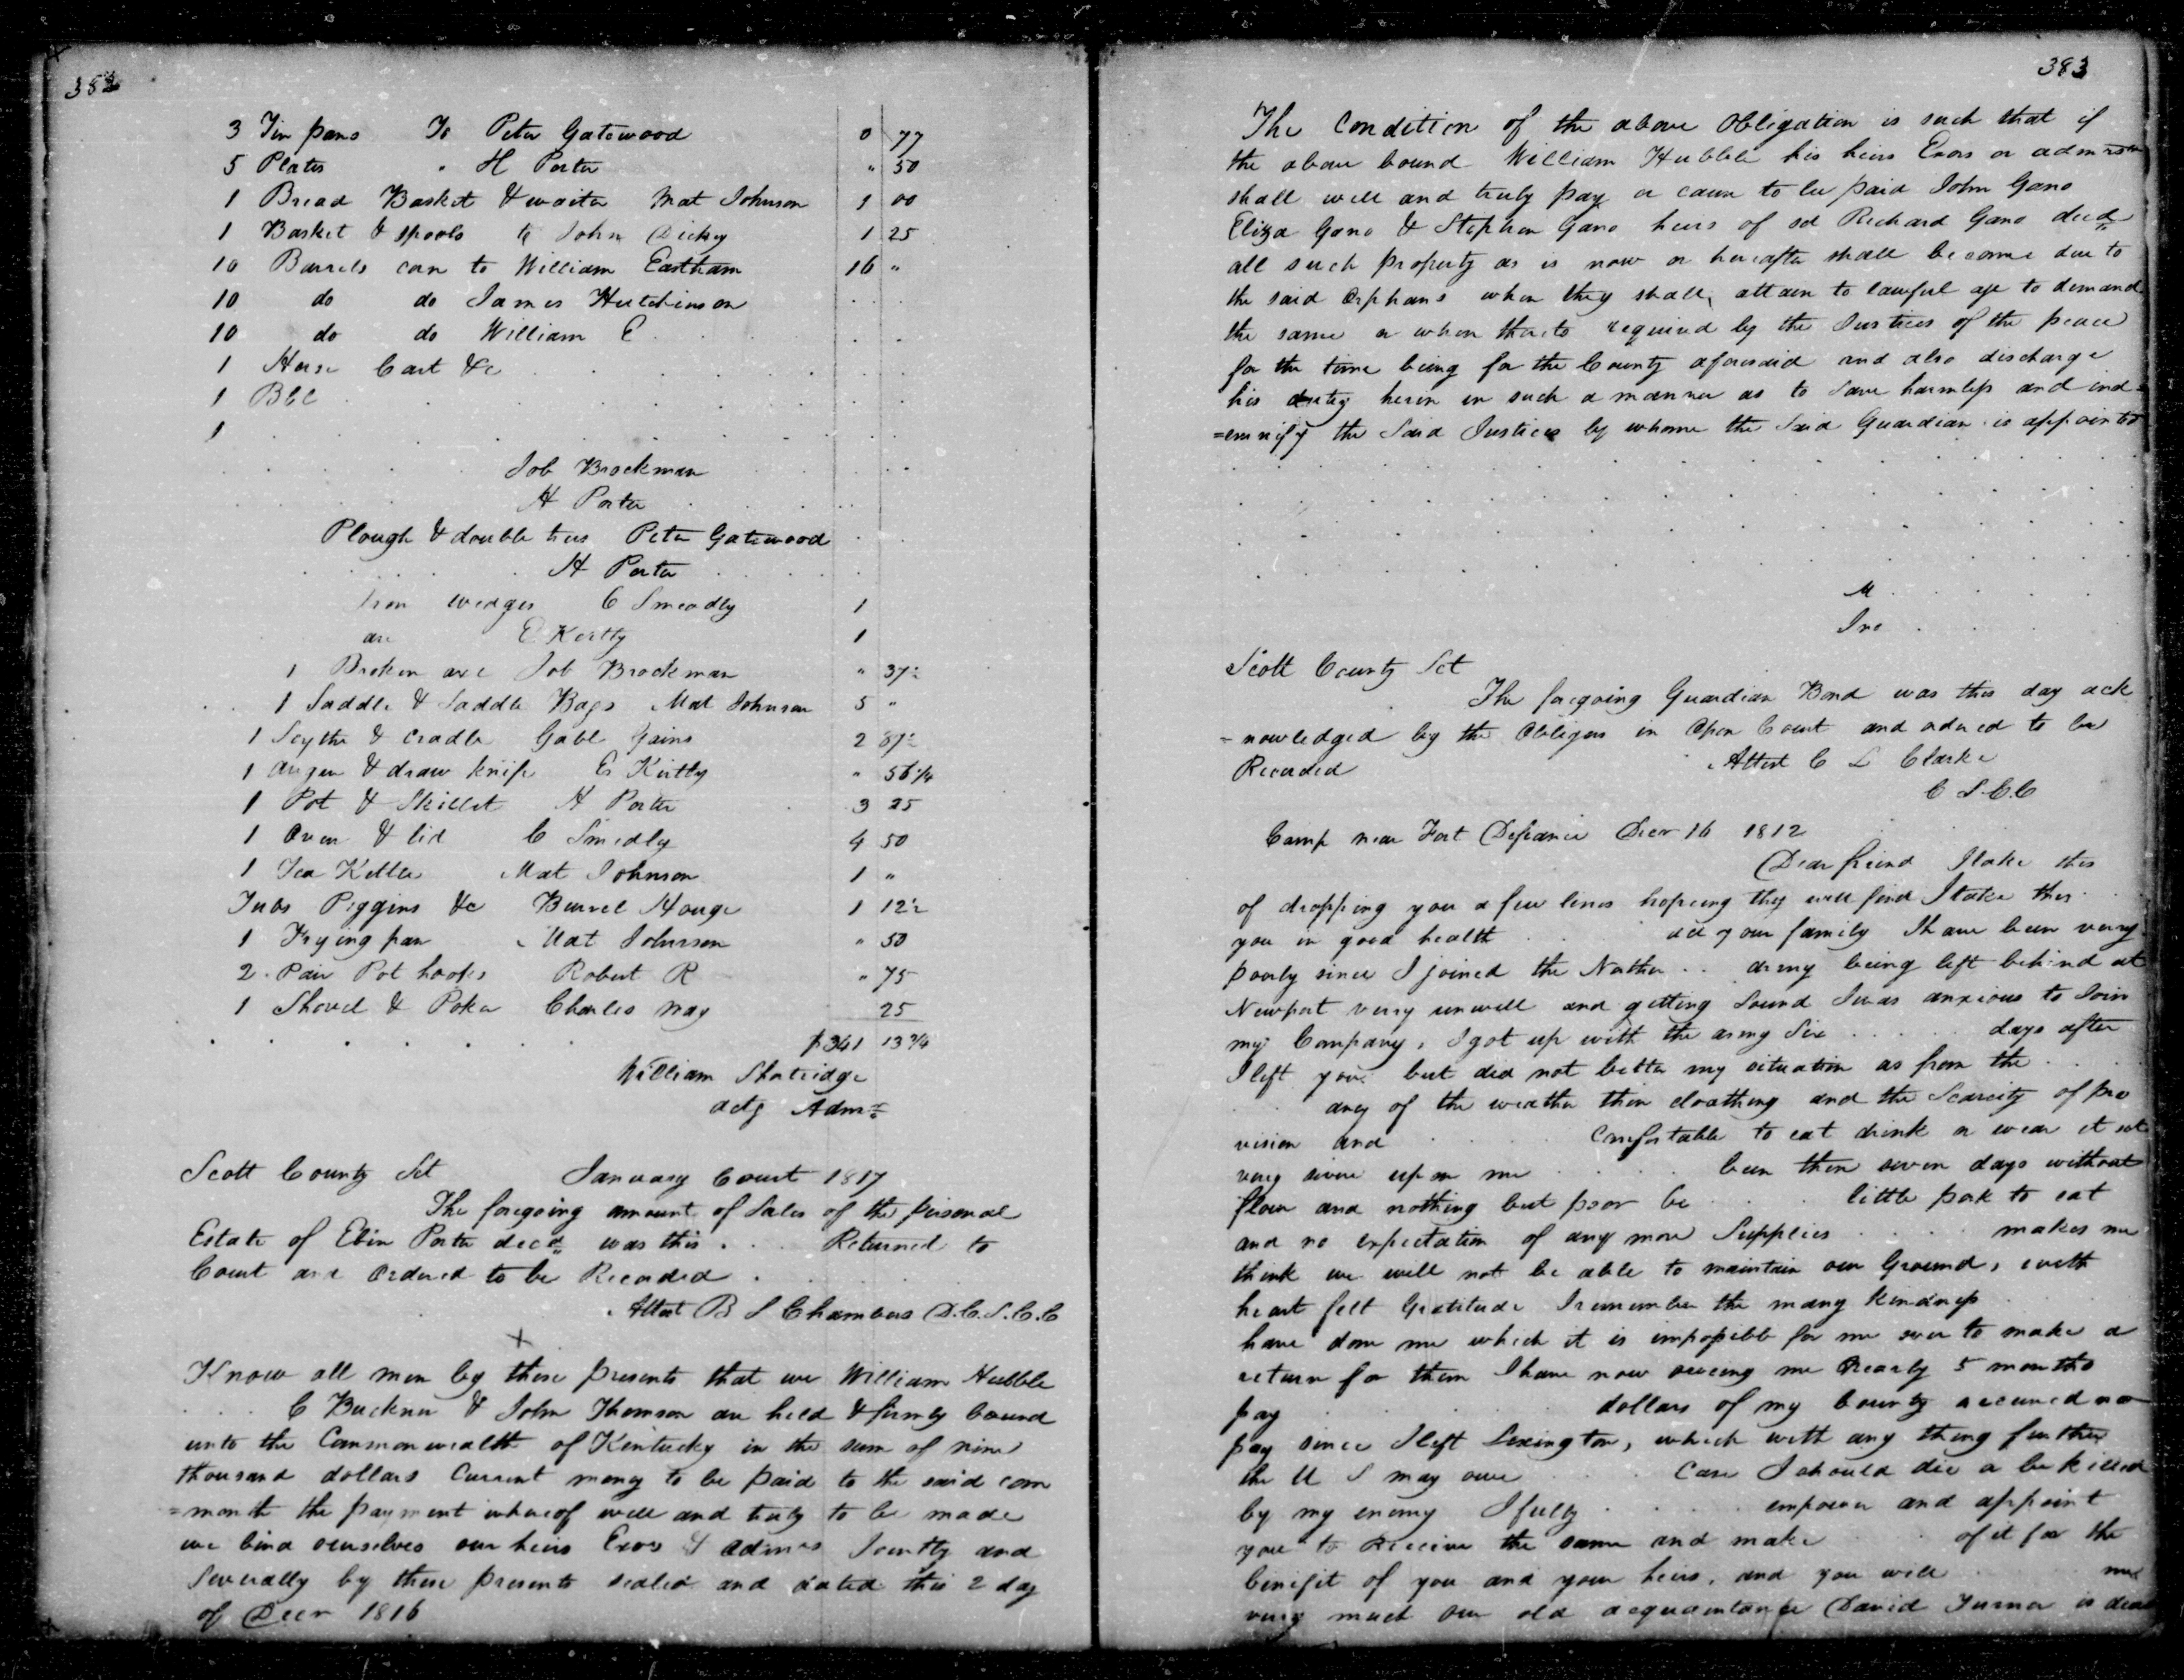 382
3 Tin pans To Peter Gatewood 0 77
5 Plates " H Porter " 50
1 Bread Basket & waiter Mat Johnson 1 00
1 Basket & spools to John Dickey 1 25
10 Barrels corn to William Eastham 16 "
10 do do James Hutchinson
10 do do William E
1 Horse Cart &c
1
1
Job Brockman
H Porter
Plough & double trees Peter Gatewood
H Porter
Iron wedges C Smeadly 1
axe E Kertly 1
1 Broken axe Job Brockman " 37½
1 Saddle & Saddle Bags Mat Johnson 5 "
1 Scythe & cradle Gabl Gains 2 87½
1 auger & draw knife Es Kirtly " 56¼
1 Pot & Skillet H Porter 3 25
1 Oven & lid C Smedly 4 50
1 Tea Kettle Mat Johnson 1 "
Tubs Piggins &c Burrel Houge 1 12½
1 Frying pan Mat Johnson " 50
2 Pair Pot hooks Robert R " 75
1 Shovel & Poker Charles 25
$341 13¾
William Shortridge
actg Admr
Scott County Sct January Court 1817
The foregoing amount of Sales of the personal
Estate of Ebin Porter decd was this . . . Returned to
Court and Ordered to be Recorded
Attest B S Chambers D.C.S.C.C
X
Know all men by these presents that we William Hubble
C Buckner & John Thomson are held & firmly bound
unto the Commonwealth of Kentucky in the sum of nine
thousand dollars Current money to be paid to the said com
=month the payment whereof well and truly to be made
we bind ourselves our heirs Exors & admrs Jointly and
Severally by these presents sealed and dated this 2 day
of Decr 1816
383
The Condition of the above Obligation is such that if
the above bound William Hubble his heirs Exors or admrs
shall well and truly pay or cause to be paid John Gano
Eliza Gano & Stephen Gano heirs of sd Richard Gano decd
all such property as is now or hereafter shall become due to
the said Orphans when they shall attain to lawful age to demand
the same or when thereto required by the Justices of the peace
for the time being for the County aforesaid and also discharge
his duty herin in such a manner as to Save harmless and ind=
=emnify the Said Justices by whome the Said Guardian is appointed
M
Jno
Scott County Sct
The foregoing Guardian Bond was this day ack
=nowledged by the Obligors in Open Court and ordered to be
Recorded Attest C L Clarke
C S.C.C
Camp near Fort Defiance Decr 16 1812
Dear friend I take this
of dropping you a few lines hopeing they will find I take this
you in good health all your family I have been very
poorly since I joined the Northe . . army being left behind at
Newport very unwell and getting Sound I was anxious to Join
my Company, I got up with the army Six . . . . days after
I left you but did not better my situation as from the
of the weather thin cloathing and the Scarcity of pro
vision and . . . . Comfortable to eat drink or wear it set
very sevire upon me . . . . been then seven days without
flour and nothing but poor be . . . little pork to eat
and no expectation of any more Supplies . . . . makes me
think we will not be able to maintain our Ground, with
heart felt Gratitude I remember the many kindness
have done me which it is impossible for me ever to make a
return for them I have now oweing me nearly 5 months
pay . . . . dollars of my bounty received no
pay since I left Lexington, which with any thing further
the U S may owe . . . . Case I should die or be killed
by my enemy I fully . . . . empower and appoint
you to Receive the same and make . . . of it for the
benifit of you and your heirs, and you will
very much our old acquaintance David Turner is dead